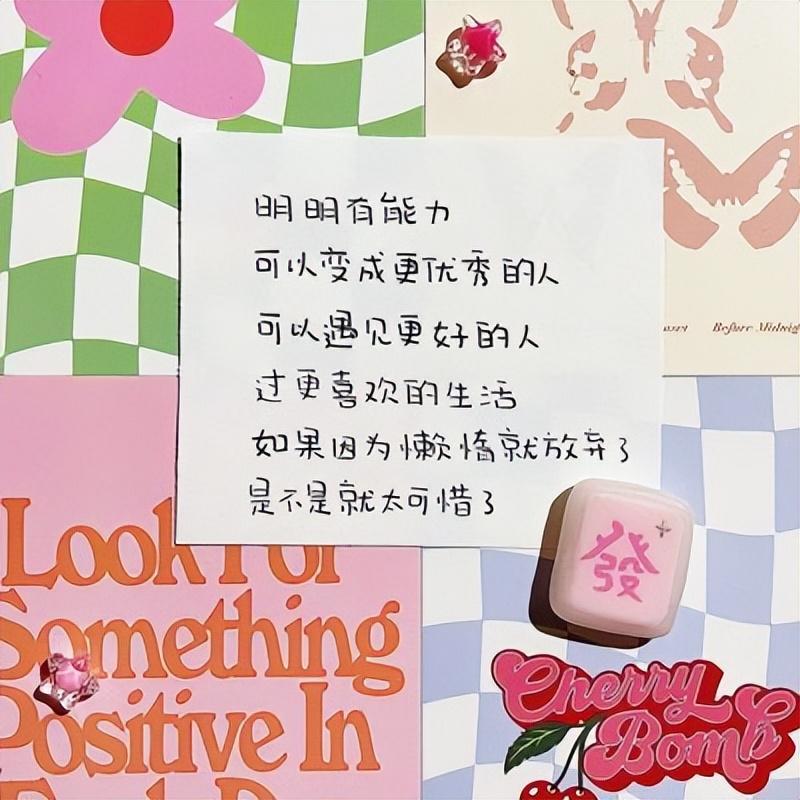 明明有能力
可以变成更优秀的人
可以遇见更好的人
过更喜欢的生活
如果因为懒惰就放弃了
是不是就太可惜了
發
Before
Look For
Something
Positive In
Cherry
Bomb